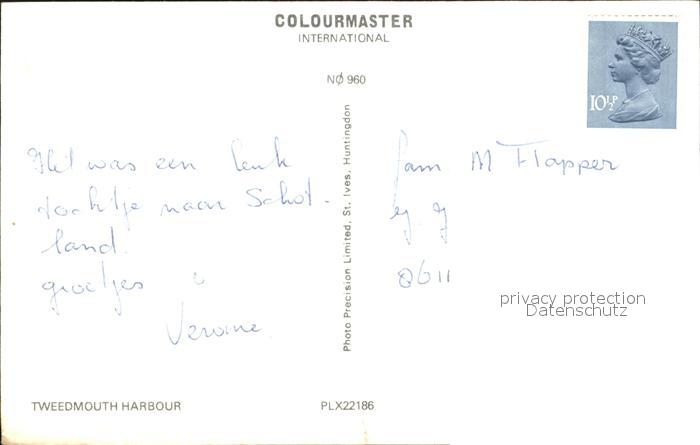 COLOURMASTER
INTERNATIONAL
NØ 960
10½P
Het was een leuk
tochtje naar Schot-
land.
groetjes
Photo Precision Limited, St. Ives, Huntingdon
Fam M Flapper
8611
privacy protection
Datenschutz
TWEEDMOUTH HARBOUR
PLX22186